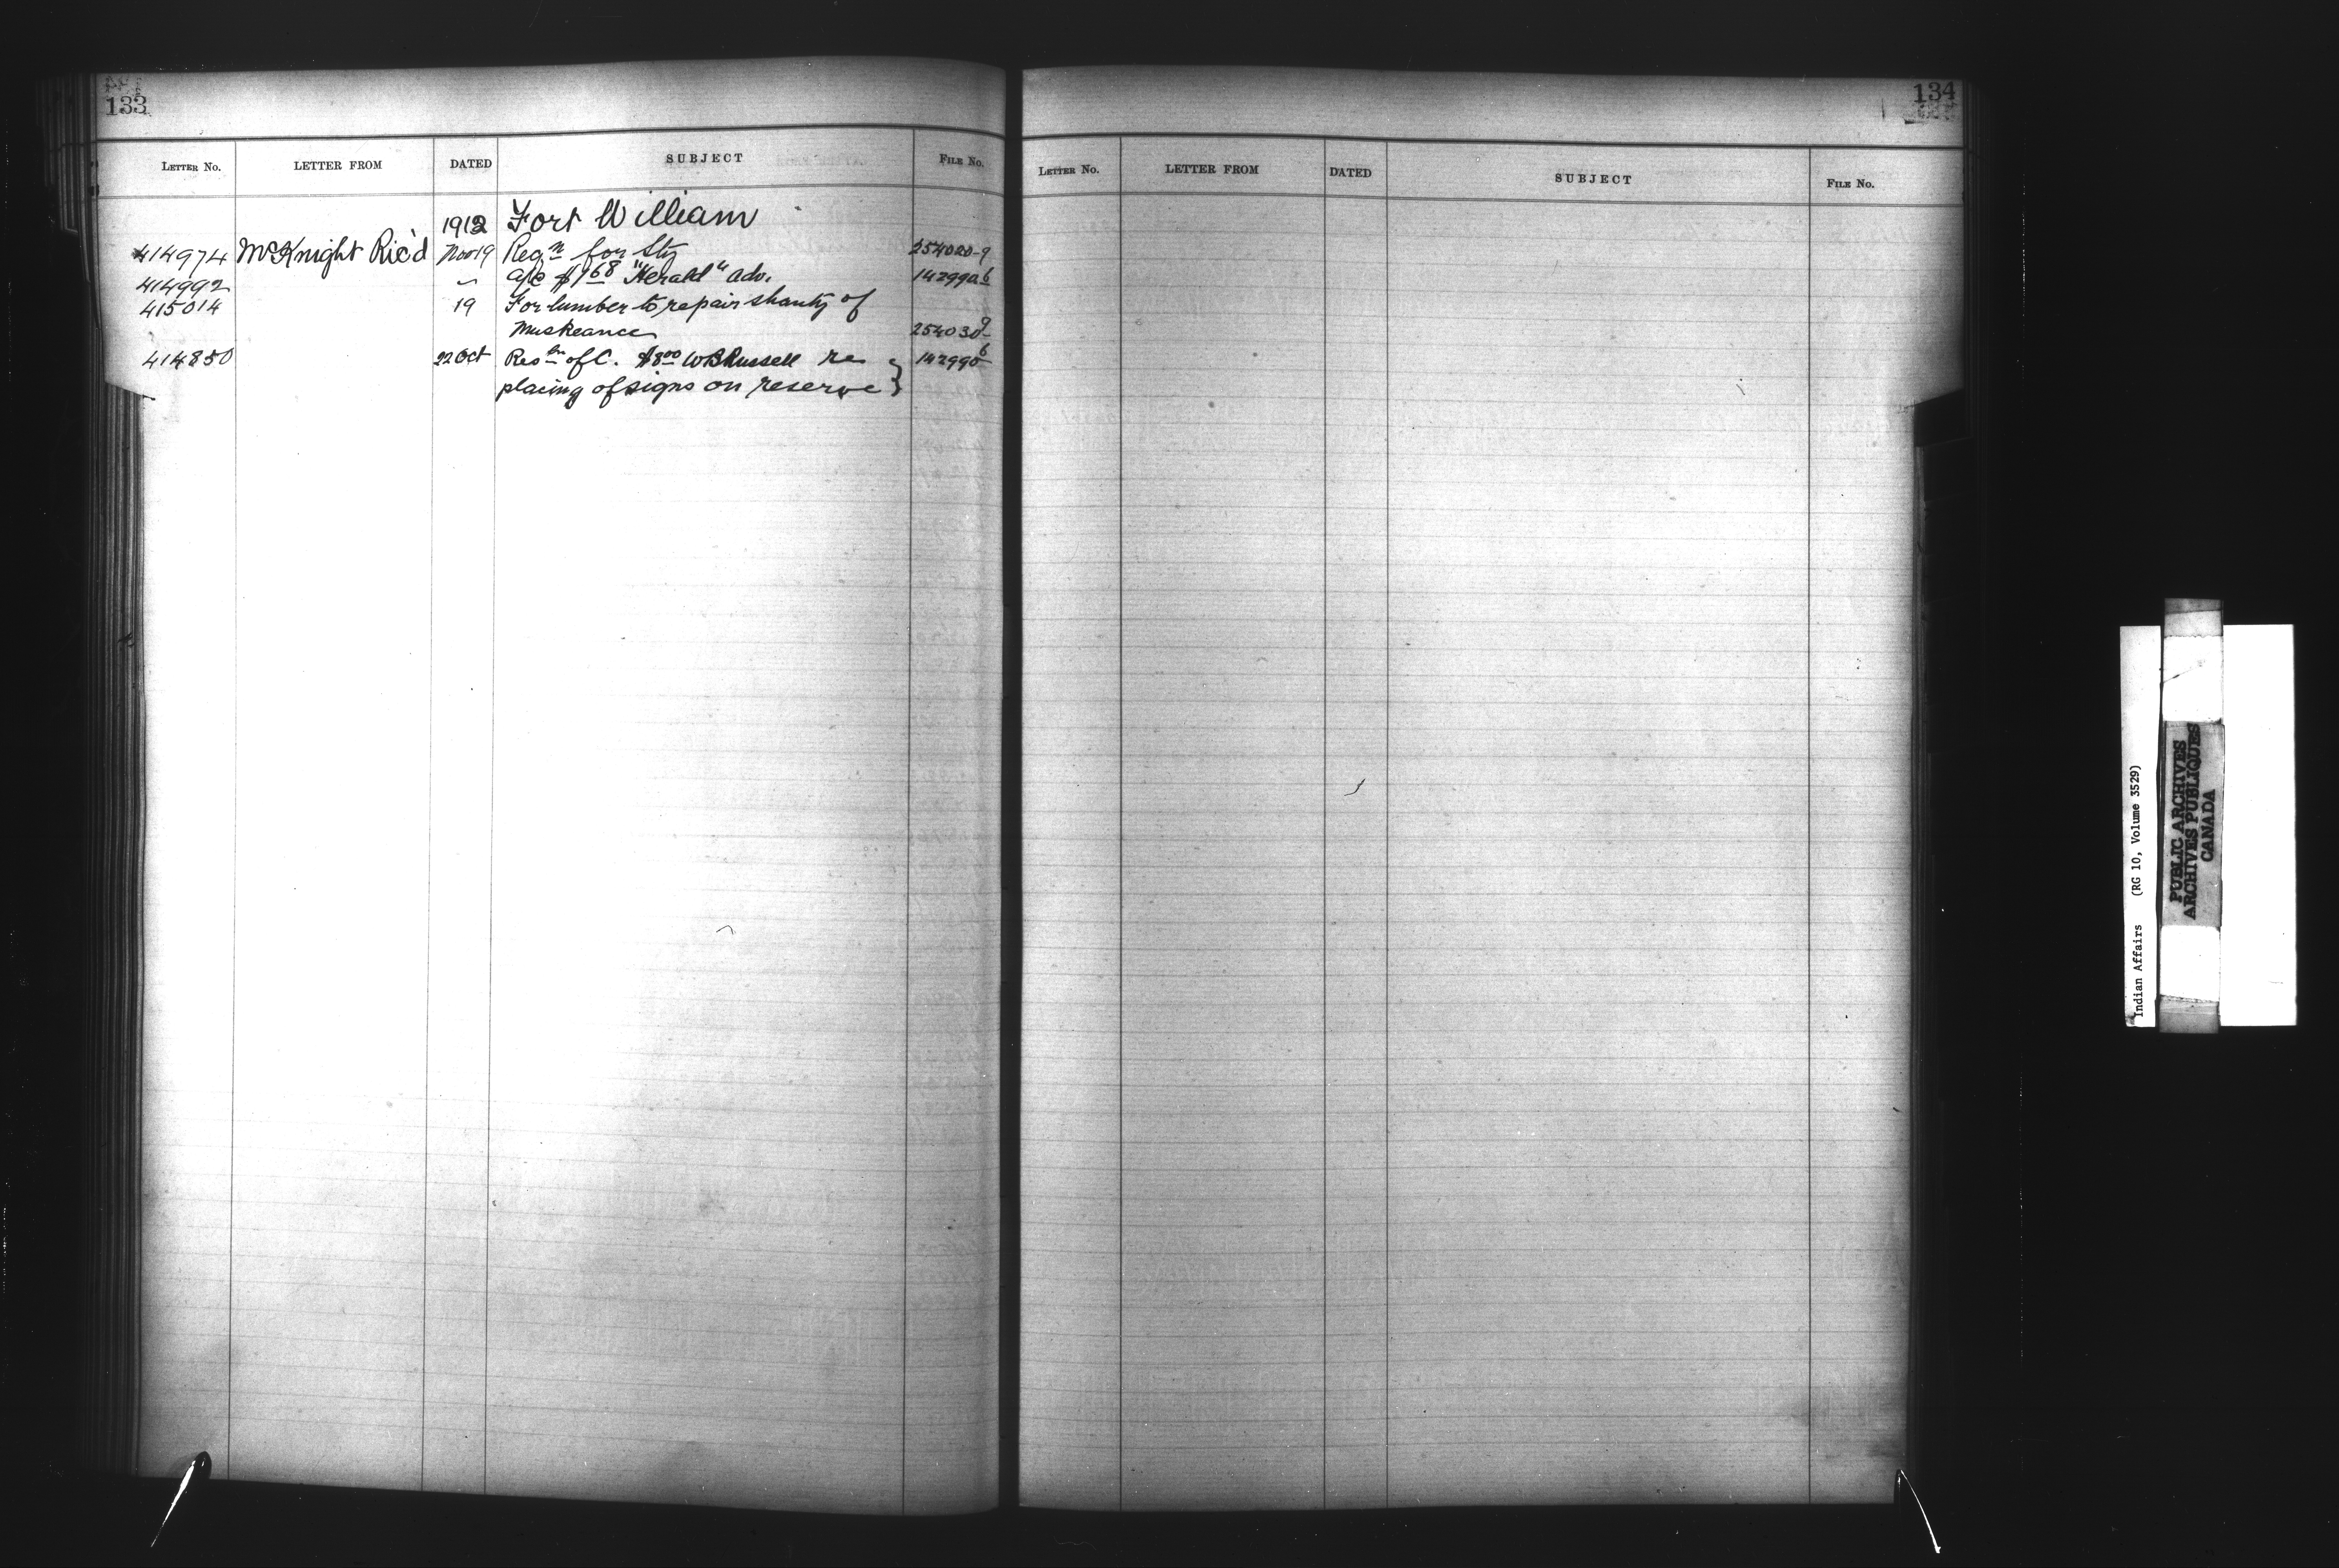 133
134
LETTER No. LETTER FROM DATED SUBJECT FILE No.
1912 Fort William
414974 McKnight Ric'd Nov 19 Reqn for Sty 254020-9
414992 " a/c $1 68 "Herald" adv. 142990 6
415014 19 For lumber to repair shanty of
Muskeance 254030 9
414850 22 Oct Resln of C. $8 00 W B Russell re } 142990 6
placing of signs on reserve
LETTER No. LETTER FROM DATED SUBJECT FILE No.
Indian Affairs (RG 10, Volume 3529)
PUBLIC ARCHIVES
ARCHIVES PUBLIQUES
CANADA